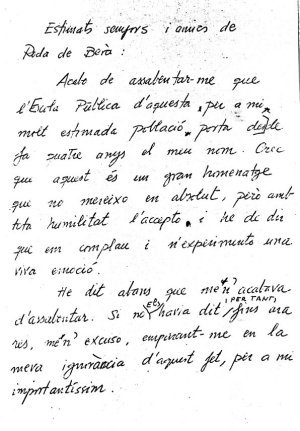 Estimats senyors i amics de
Roda de Berà :
Acabo de assabentar-me que
l'Escola Pública d'aquesta, per a mi,
molt estimada població, porta desde
fa quatre anys el meu nom. Crec
que aquest és un gran homenatge
que no mereixo en absolut, però amb
tota humilitat l'accepto, i he de dir
que em complau i n'experimento una
viva emoció.
He dit abans que me'n acabava
d'assabentar. Si no HO havia dit, I PER TANT, fins ara
res, me'n excuso, emparant-me en la
meva ignorància d'aquest fet, per a mi
importantíssim.